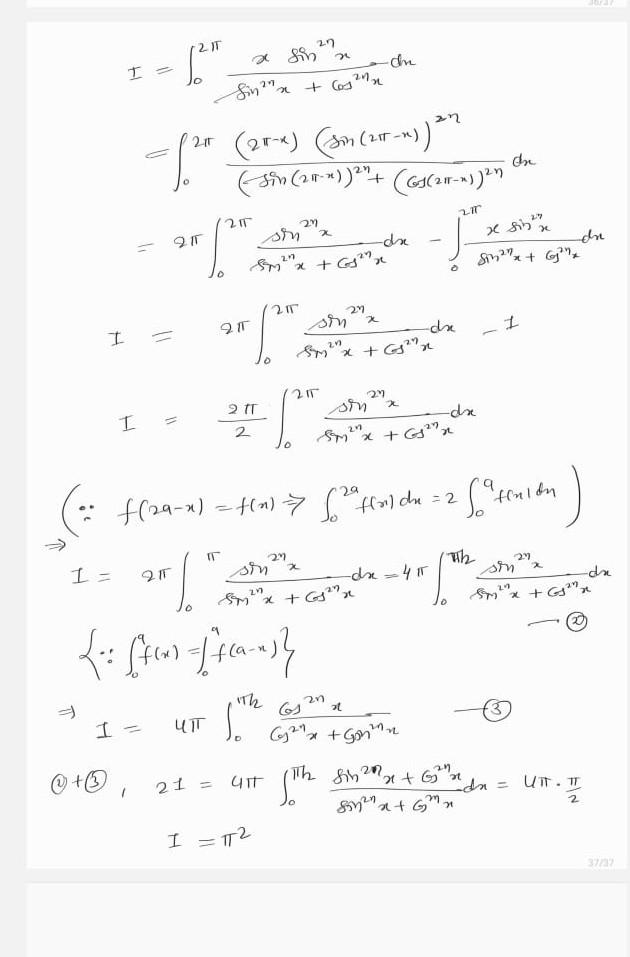 36/37
I = ∫₀^{2π} x sin^{2n} x / (sin^{2n} x + cos^{2n} x) dx
= ∫₀^{2π} (2π-x) (sin(2π-x))^{2n} / ((sin(2π-x))^{2n} + (cos(2π-x))^{2n}) dx
= 2π ∫₀^{2π} sin^{2n} x / (sin^{2n} x + cos^{2n} x) dx - ∫₀^{2π} x sin^{2n} x / (sin^{2n} x + cos^{2n} x) dx
I = 2π ∫₀^{2π} sin^{2n} x / (sin^{2n} x + cos^{2n} x) dx - I
I = 2π/2 ∫₀^{2π} sin^{2n} x / (sin^{2n} x + cos^{2n} x) dx
(∵ f(2a-x) = f(x) ⇒ ∫₀^{2a} f(x) dx = 2 ∫₀^a f(x) dx)
⇒ I = 2π ∫₀^π sin^{2n} x / (sin^{2n} x + cos^{2n} x) dx = 4π ∫₀^{π/2} sin^{2n} x / (sin^{2n} x + cos^{2n} x) dx — ②
{∵ ∫₀^a f(x) = ∫₀^a f(a-x)}
⇒ I = 4π ∫₀^{π/2} cos^{2n} x / (cos^{2n} x + sin^{2n} x) — ③
②+③, 2I = 4π ∫₀^{π/2} (sin^{2n} x + cos^{2n} x) / (sin^{2n} x + cos^{2n} x) dx = 4π · π/2
I = π²
37/37